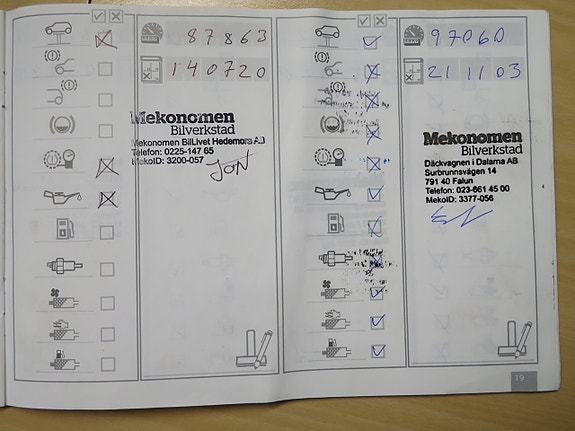 87863
140720
Mekonomen
Bilverkstad
Mekonomen BilLivet Hedemora AB
Telefon: 0225-147 65
MekoID: 3200-057
JoN
97060
21 11 03
Mekonomen
Bilverkstad
Däckvagnen i Dalarna AB
Surbrunnsvägen 14
791 40 Falun
Telefon: 023-661 45 00
MekoID: 3377-056
19